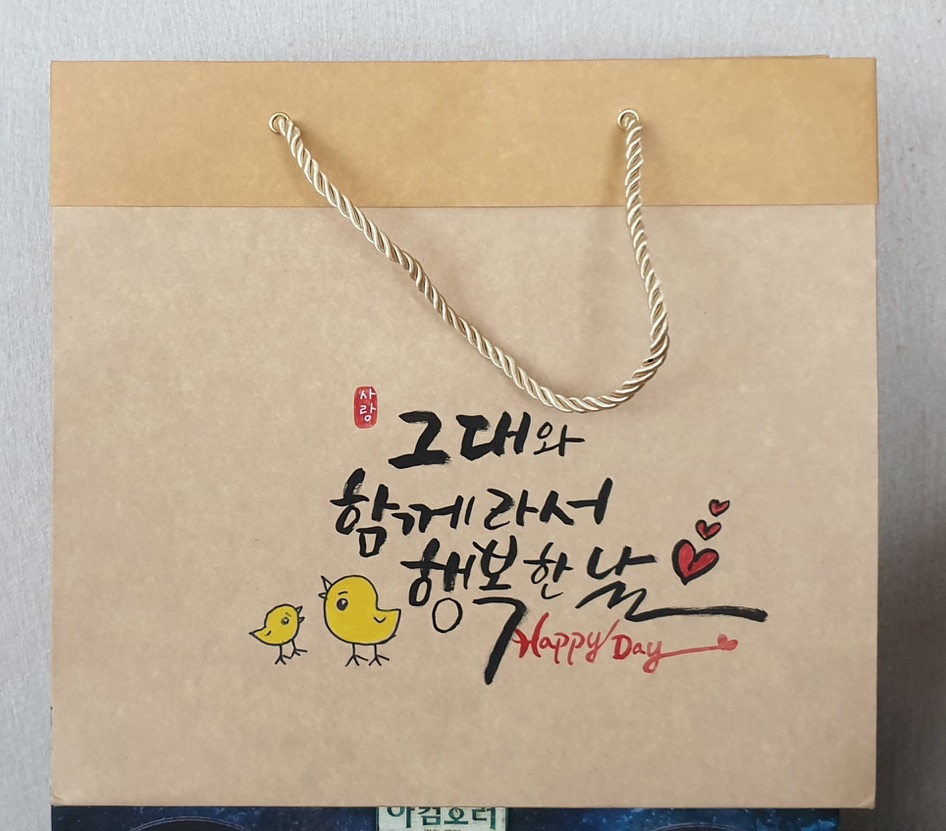 사랑
그대와
함께라서
행복한 날
Happy Day